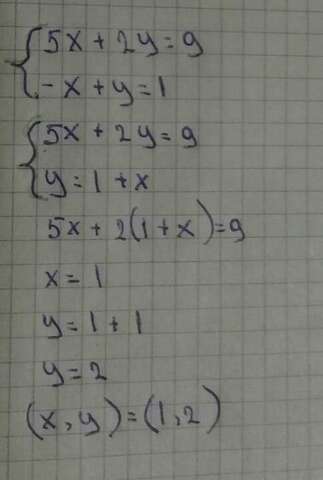 5x + 2y = 9
-x + y = 1
5x + 2y = 9
y = 1 + x
5x + 2(1 + x) = 9
x = 1
y = 1 + 1
y = 2
(x, y) = (1, 2)